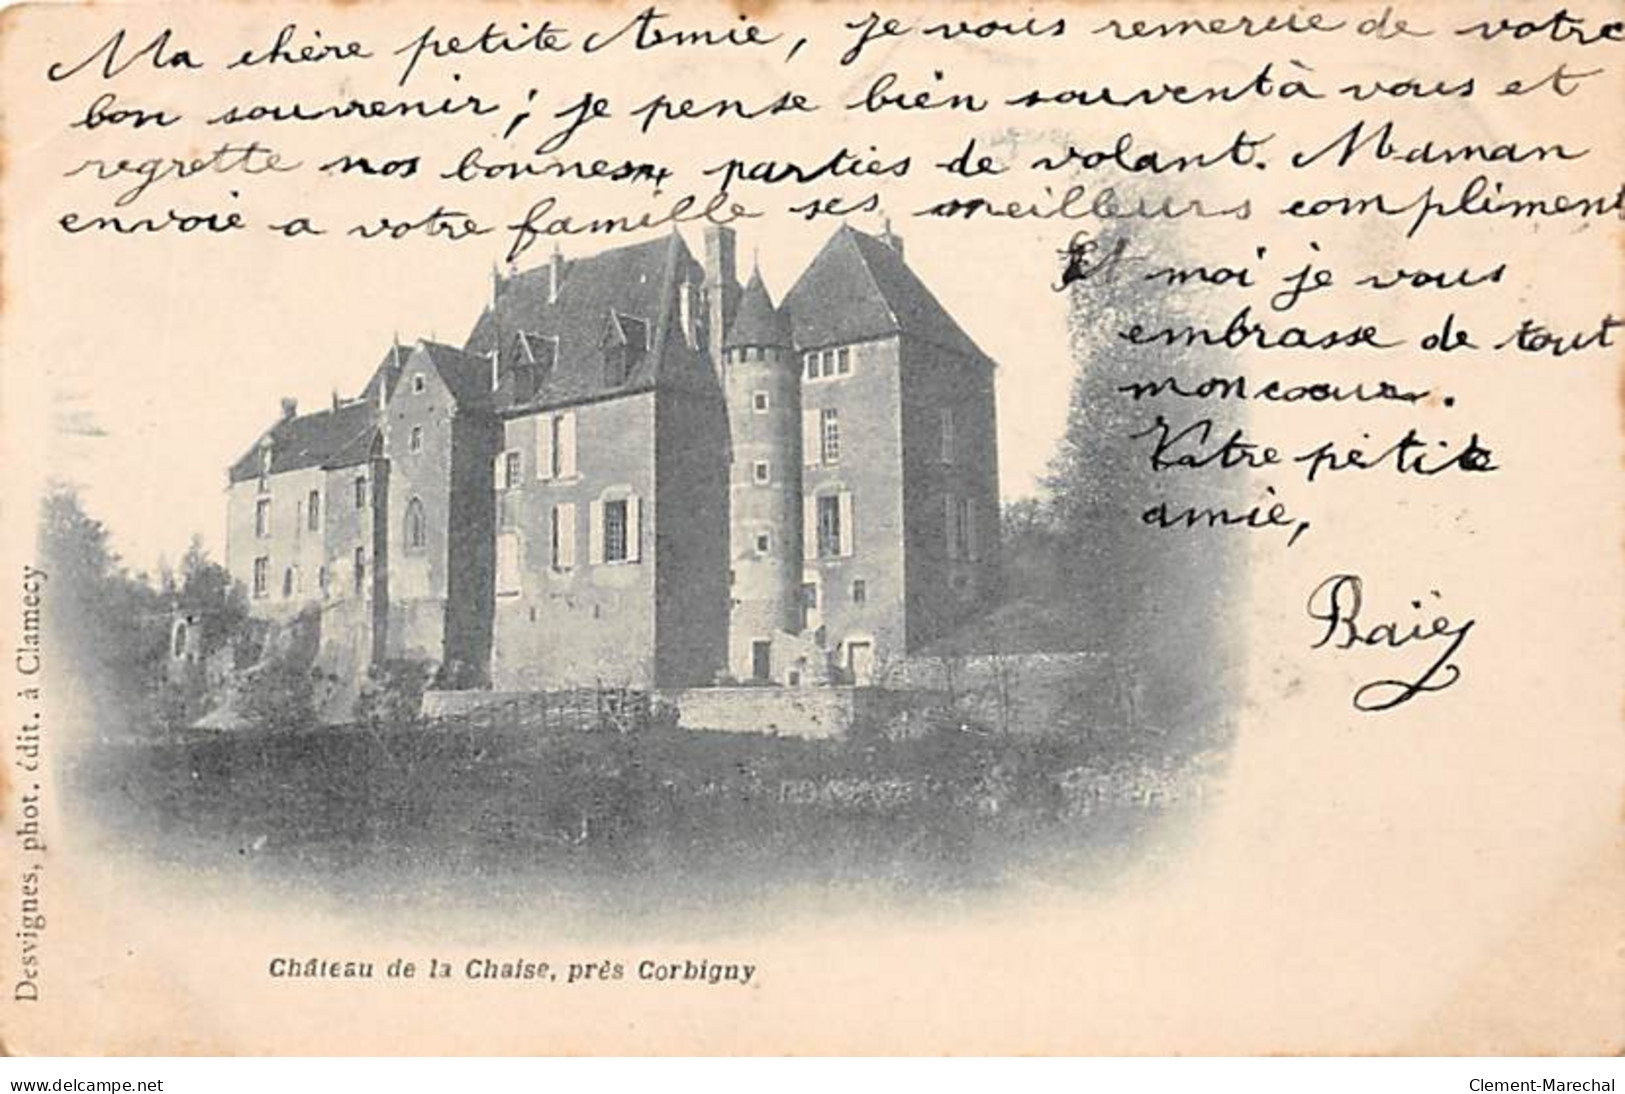 Ma chère petite Amie, je vous remercie de votre
bon souvenir; je pense bien souvent à vous et
regrette nos bonnes parties de volant. Maman
envoie a votre famille ses meilleurs compliment
Et moi je vous
embrasse de tout
mon coeur.
Votre petite
amie,
Desvignes, phot. édit. à Clamecy
Château de la Chaise, près Corbigny
www.delcampe.net
Clement-Marechal